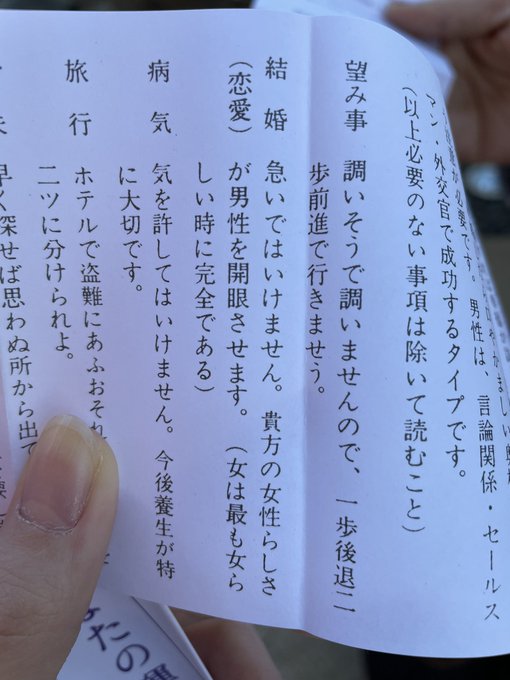 が必要です。男性は、言論関係・セールス
マン・外交官で成功するタイプです。
(以上必要のない事項は除いて読むこと)
望み事 調いそうで調いませんので、一歩後退二
歩前進で行きませう。
結婚 急いではいけません。貴方の女性らしさ
(恋愛) が男性を開眼させます。(女は最も女ら
しい時に完全である)
病気 気を許してはいけません。今後養生が特
に大切です。
旅行 ホテルで盗難にあふおそれ
二ツに分けられよ。
早く探せば思わぬ所から出て
たの運